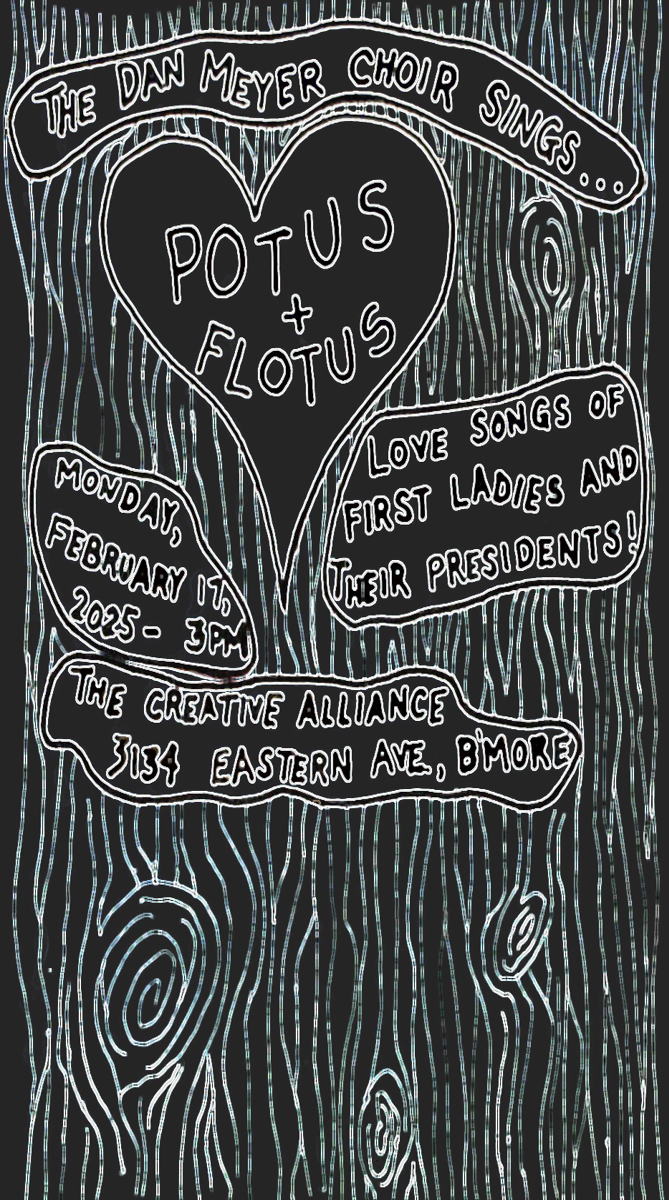 THE DAN MEYER CHOIR SINGS...
POTUS
+
FLOTUS
LOVE SONGS OF
FIRST LADIES AND
THEIR PRESIDENTS!
MONDAY,
FEBRUARY 17,
2025 - 3PM
THE CREATIVE ALLIANCE
3134 EASTERN AVE., B'MORE